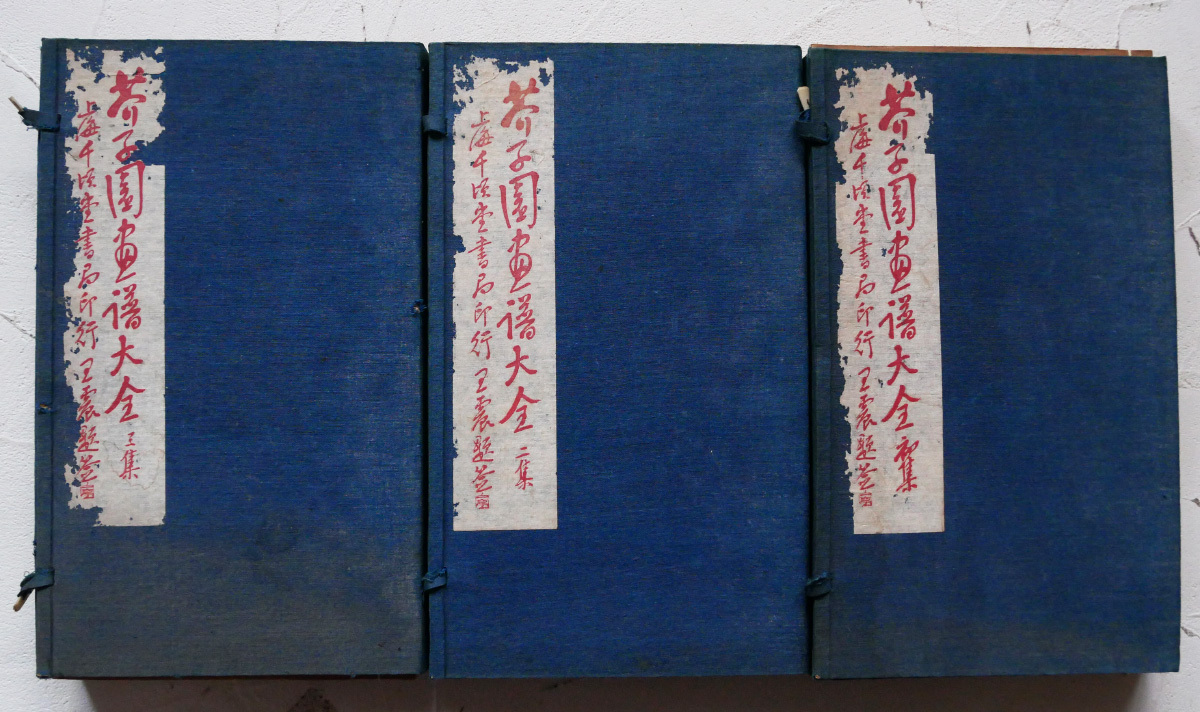 芥子園畫譜大全 初集
上海千頃堂書局印行 王震題簽
芥子園畫譜大全 二集
上海千頃堂書局印行 王震題簽
芥子園畫譜大全 三集
上海千頃堂書局印行 王震題簽